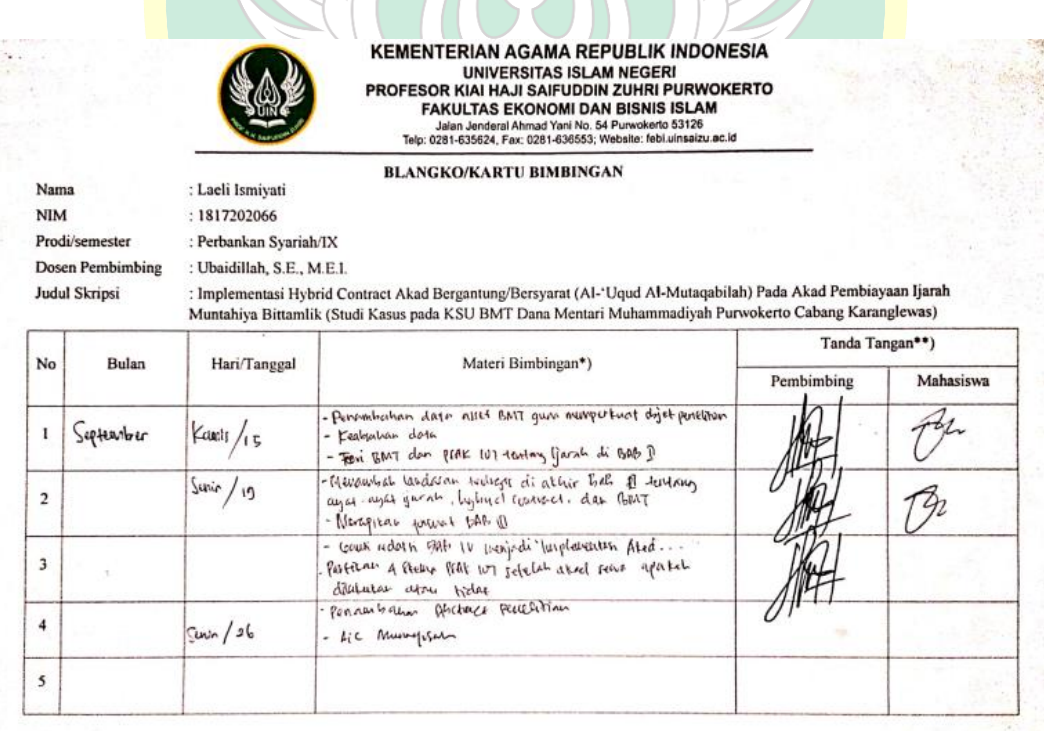 KEMENTERIAN AGAMA REPUBLIK INDONESIA
UNIVERSITAS ISLAM NEGERI
PROFESOR KIAI HAJI SAIFUDDIN ZUHRI PURWOKERTO
FAKULTAS EKONOMI DAN BISNIS ISLAM
Jalan Jenderal Ahmad Yani No. 54 Purwokerto 53126
Telp: 0281-635624, Fax: 0281-636553; Website: febi.uinsaizu.ac.id
UIN
BLANGKO/KARTU BIMBINGAN
Nama : Laeli Ismiyati
NIM : 1817202066
Prodi/semester : Perbankan Syariah/IX
Dosen Pembimbing : Ubaidillah, S.E., M.E.I.
Judul Skripsi : Implementasi Hybrid Contract Akad Bergantung/Bersyarat (Al-'Uqud Al-Mutaqabilah) Pada Akad Pembiayaan Ijarah
Muntahiya Bittamlik (Studi Kasus pada KSU BMT Dana Mentari Muhammadiyah Purwokerto Cabang Karanglewas)
No Bulan Hari/Tanggal Materi Bimbingan*) Tanda Tangan**)
Pembimbing Mahasiswa
1 September Kamis/15
- Penambahan data aset BMT guna memperkuat objek penelitian
- Keabsahan data
- Teori BMT dan PSAK 107 tentang Ijarah di BAB II
2 Senin/19
- Menambah landasan teologis di akhir Bab II tentang
ayat-ayat ijarah, hybrid contract, dan BMT
- Merapikan BAB III
3
- BAB IV menjadi Implementasi Akad...
PSAK 107 setelah akad sewa apakah
dilakukan atau tidak
4 Senin/26
- Penambahan Abstrack Penelitian
- Acc Munaqosah
5